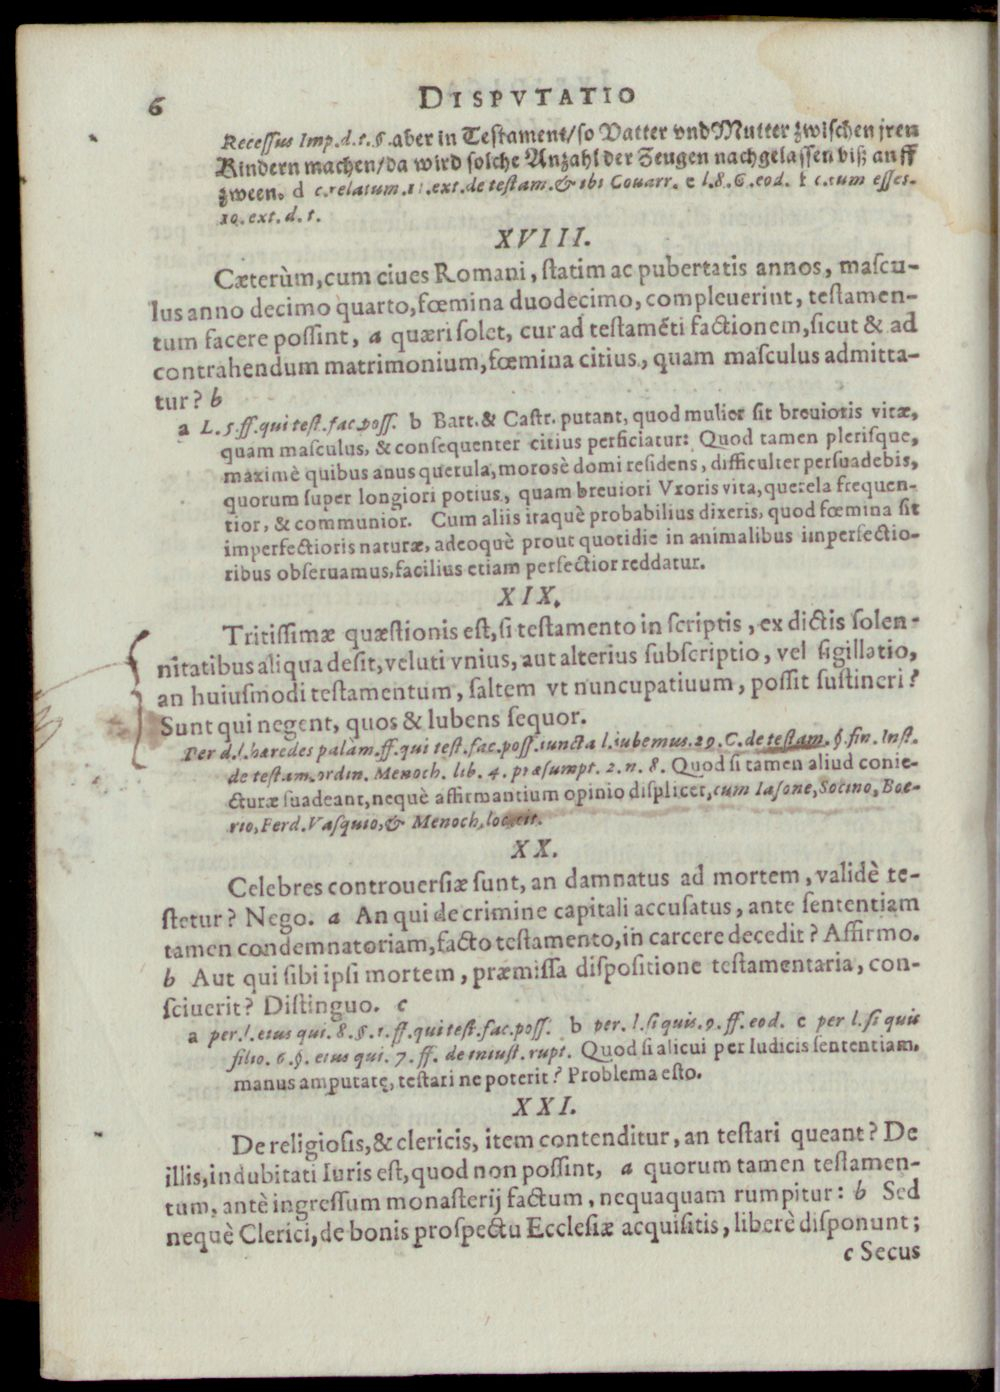 6 DISPVTATIO
Recessus Imp. d. t. §. aber in Testament/ so Vatter vnd Mutter zwischen jren
Kindern machen/ da wird solche Anzahl der Zeugen nachgelassen biß auff
zween. d c. relatum. 11. ext. de testam. & ibi Couarr. e l. 8. C. eod. f c. cum esses.
10. ext. d. t.
XVIII.
Cæterùm, cum ciues Romani, statim ac pubertatis annos, mascu-
lus anno decimo quarto, fœmina duodecimo, compleuerint, testamen-
tum facere possint, a quæri solet, cur ad testamēti factionem, sicut & ad
contrahendum matrimonium, fœmina citius, quam masculus admitta-
tur? b
a L. 5. ff. qui test. fac. poss. b Bart. & Castr. putant, quod mulier sit breuioris vitæ,
quam masculus, & consequenter citius perficiatur: Quod tamen plerisque,
maximè quibus anus querula, morosè domi residens, difficulter persuadebis,
quorum super longiori potius, quam breuiori Vxoris vita, querela frequen-
tior, & communior. Cum aliis itaquè probabilius dixeris, quod fœmina sit
imperfectioris naturæ, adeoquè prout quotidie in animalibus imperfectio-
ribus obseruamus, facilius etiam perfectior reddatur.
XIX.
Tritissimæ quæstionis est, si testamento in scriptis, ex dictis solen-
nitatibus aliqua desit, veluti vnius, aut alterius subscriptio, vel sigillatio,
an huiusmodi testamentum, saltem vt nuncupatiuum, possit sustineri?
Sunt qui negent, quos & lubens sequor.
Per d. l. hæredes palàm. ff. qui test. fac. poss. iuncta l. iubemus. 29. C. de testam. §. fin. Inst.
de testam. ordin. Menoch. lib. 4. præsumpt. 2. n. 8. Quod si tamen aliud conie-
cturæ suadeant, nequè affirmantium opinio displicet, cum Iasone, Socino, Boe-
rio, Ferd. Vasquio, & Menoch. loc. cit.
XX.
Celebres controuersiæ sunt, an damnatus ad mortem, validè te-
stetur? Nego. a An qui de crimine capitali accusatus, ante sententiam
tamen condemnatoriam, facto testamento, in carcere decedit? Affirmo.
b Aut qui sibi ipsi mortem, præmissa dispositione testamentaria, con-
sciuerit? Distinguo. c
a per l. eius qui. 8. §. 1. ff. qui test. fac. poss. b per. l. si quis. 9. ff. eod. c per l. si quis
filio. 6. §. eius qui. 7. ff. de iniust. rupt. Quod si alicui per Iudicis sententiam.
manus amputatę, testari ne poterit? Problema esto.
XXI.
De religiosis, & clericis, item contenditur, an testari queant? De
illis, indubitati Iuris est, quod non possint, a quorum tamen testamen-
tum, antè ingressum monasterij factum, nequaquam rumpitur: b Sed
nequè Clerici, de bonis prospectu Ecclesiæ acquisitis, liberè disponunt;
c Secus